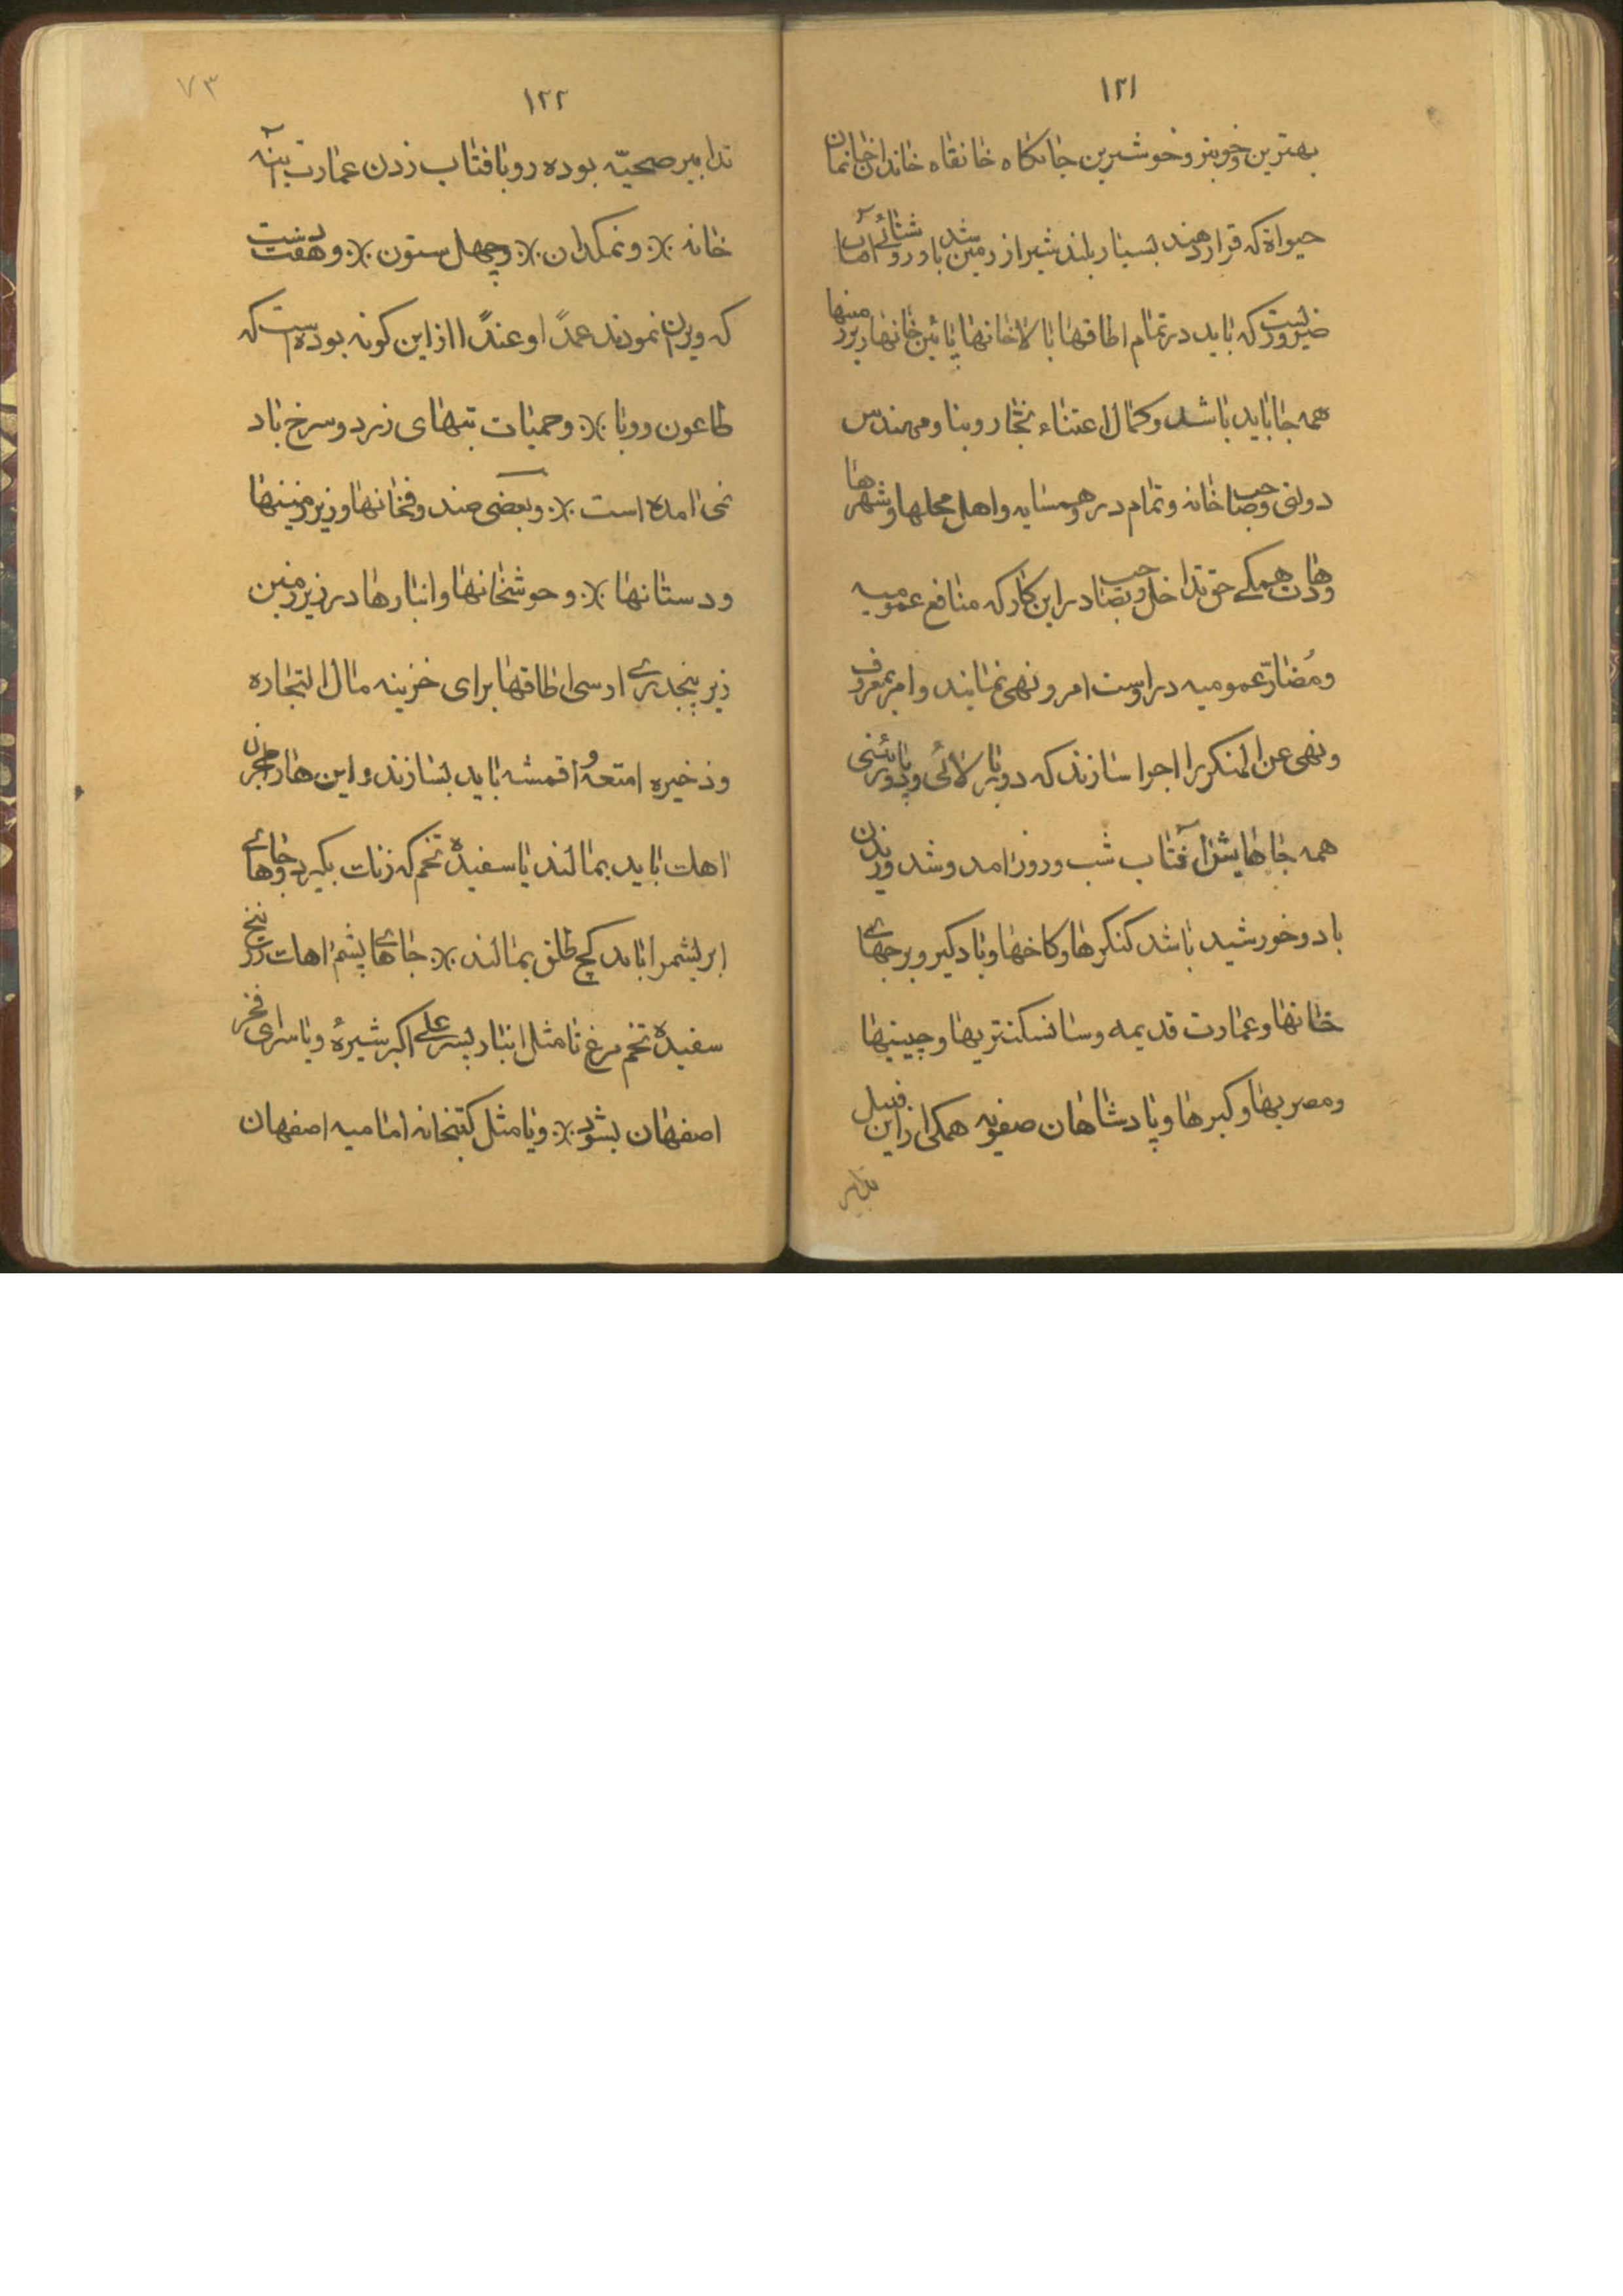 ۱۲۱
بهترین و خوبتر و خوشترین جایگاه خانقاه خاندان خانمان
حیواة که قرار دهند بسیار بلند شیر از زمین باشد و روشنائی آن اما
ضرورلیست که باید در تمام اطاقها بالاخانها پائین خانها زیر زمینها
همه جا باید باشد و کمال اعتناء نجار و بنا و مهندس
دولتی و صاحب خانه و تمام در و همسایه و اهل محلها و شهرها
و دهات همگی حق تداخل و تصاحب در این کار که منافع عمومیه
و مُضارّ عمومیه در اوست امر و نهی نمایند و امر بمعروف
و نهی عن المنکر را اجرا سازند که دور بالائی و دور پائینی
همه جاهایش را آفتاب شب و روز امد و شد وزیدن
باد و خورشید باشد کنگرها و کاخها و بادگیر و برجهای
خانها و عمارت قدیمه و سانسکتریها و چینیها
و مصریها و گبرها و پادشاهان صفویه همگی از این قبیل
تدابیر
۷۳
۱۲۲
تدابیر صحیّه بوده رو بافتاب زدن عمارت آینه
خانه ؞ و نمکدان ؞ و چهل ستون ؞ و هفت دست
که ویران نمودند عمدًا و عندًا از این گونه بوده است که
طاعون و وبا ؞ و حمیات تبهای زرد و سرخ باد
نمی امده است ؞ و بعضی صندوقخانها و زیرزمینها
و دستانها ؞ و حوشخانها و انبارها در زیر زمین
زیر پنجدری ارسی اطاقها برای خزینه مال التجاره
و ذخیره امتعه و اقمشه باید بسازند و این ها را جرز
اهک باید بمالند یا سفیده تخم که زنات بگیرد و جاهای
ابریشم را باید گچ طلق بمالند ؞ جاهای پشم اهک زرنیخ
سفیده تخم مرغ تا مثل انبار پسر علی اکبر شیرهٔ و یا سرای فخر
اصفهان بشود ؞ و یا مثل کتبخانه امامیه اصفهان